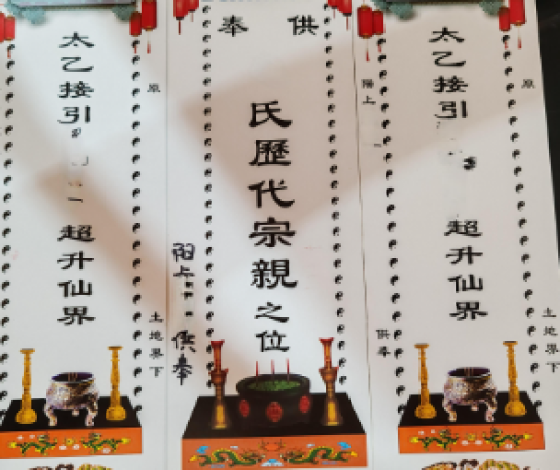 太乙接引
超升仙界
原
土地界下
供奉
氏歷代宗親之位
阳上
供奉
太乙接引
超升仙界
陽上
供奉
原
土地界下